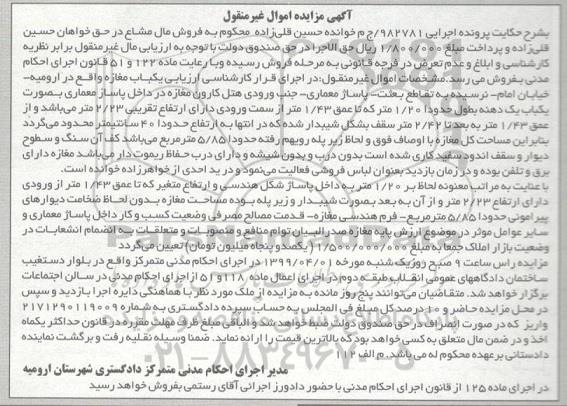 آگهی مزایده اموال غیرمنقول
بشرح حکایت پرونده اجرایی ۹۸۲۷۸۱/ج م خوانده حسین قلی‌زاده محکوم به فروش مال مشاع در حق خواهان حسین
قلی‌زاده و پرداخت مبلغ ریال حق الاجرا در حق صندوق دولت با توجه به ارزیابی مال غیر منقول برابر نظریه
کارشناسی و ابلاغ و عدم تعرض در فرجه قانونی به مرحله فروش رسیده و با رعایت ماده ۱۲۲ و ۵۱ قانون اجرای احکام
مدنی بفروش می رسد. مشخصات اموال غیرمنقول: در اجرای قرار کارشناسی ارزیابی یکباب مغازه واقع در ارومیه-
خیابان امام- نرسیده به تقاطع بعثت- پاساژ معماری- جنب ورودی هتل کارون مغازه در داخل پاساژ معماری بصورت
یکباب یک دهنه بطول حدودا ۱/۲۰ متر که تا عمق ۱/۴۳ متر از سمت ورودی دارای ارتفاع تقریبی ۲/۲۳ متر می‌باشد و از
عمق ۱/۴۳ متر به بعد تا ۲/۴۲ متر سقف بشکل شیبدار شده که در انتها به ارتفاع حدودا ۴۰ سانتیمتر محدود می‌گردد
بنابراین مساحت کل مغازه با اوصاف فوق و لحاظ زیر پله رویهم رفته حدودا ۵/۸۵ متر مربع می باشد کف آن سنگ و سطوح
دیوار و سقف اندود سفید کاری شده است بدون درب و بدون شیشه و دارای درب حفاظ ریموت دار می‌باشد مغازه دارای
برق و تلفن بوده و در زمان بازدید بعنوان لباس فروشی فعالیت می‌نمود و در ید احدی از خواهر زاده خوانده است.
با عنایت به مراتب معنونه لحاظ بر ۱/۲۰ متر به داخل پاساژ شکل هندسی و ارتفاع متغیر که تا عمق ۱/۴۳ متر از ورودی
دارای ارتفاع ۲/۲۳ متر و از آن به بعد بصورت شیبدار و زیر پله بوده مساحت مغازه بدون لحاظ ضخامت دیوارهای
پیرامونی حدودا ۵/۸۵ مترمربع- فرم هندسی مغازه- قدمت مصالح مصرفی وضعیت کسب و کار داخل پاساژ معماری و
سایر عوامل موثر در موضوع ارزش پایه مغازه صدرالبیان توام منافع و منصوبات و متعلقات به انضمام انشعابات در
وضعیت بازار املاک جمعا به مبلغ ۱/۵۰۰/۰۰۰/۰۰۰ (یکصد و پنجاه میلیون تومان) تعیین می‌گردد
مزایده راس ساعت ۹ صبح روز یک شنبه مورخه ۱۳۹۹/۰۴/۰۱ در اجرای احکام مدنی متمرکز واقع در بلوار دستغیب
ساختمان دادگاههای عمومی انقلاب طبقه دوم در اجرای اعمال ماده ۱۱۸ و ۵۱ از اجرای احکام مدنی در سالن اجتماعات
برگزار خواهد شد. متقاضیان می‌توانند پنج روز مانده به مزایده از ملک مورد نظر با هماهنگی دایره اجرا بازدید و سپس
در محل مزایده حاضر و ۱۰ درصد کل مبلغ فی المجلس به حساب سپرده دادگستری به شماره ۲۱۷۱۲۹۰۱۱۹۰۰۹
واریز که در صورت انصراف در حق صندوق دولت ضبط خواهد شد و الباقی مبلغ ظرف مهلت مقرره در قانون حداکثر یکماه
اخذ و در ضمن مال متعلق به کسی خواهد بود که بالاترین قیمت را ارائه نماید. ضمنا وسیله نقلیه رفت و برگشت نماینده
دادستانی بر عهده محکوم له می باشد. م الف ۱۱۲
مدیر اجرای احکام مدنی متمرکز دادگستری شهرستان ارومیه
در اجرای ماده ۱۲۵ از قانون اجرای احکام مدنی با حضور دادورز اجرائی آقای رستمی بفروش خواهد رسید
۰۲۱-۸۸۳۴۹۶۷۰-۵